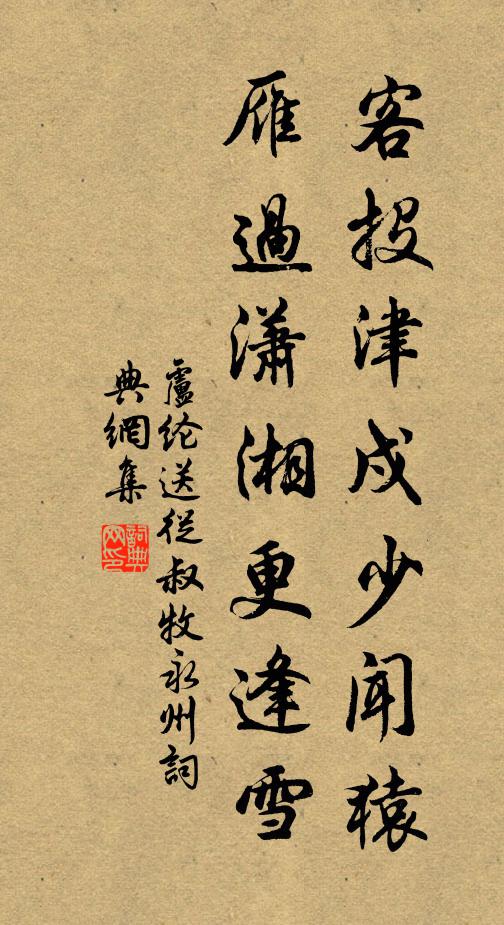 客投津戍少闻猿
雁過瀟湘更逢雪
盧纶送從叔牧永州詞
典網集
詞典
网印